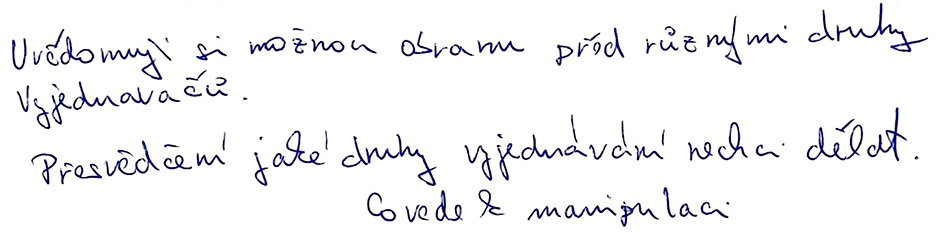 Uvědomuji si možnou obranu před různými druhy
vyjednavačů.
Přesvědčení jaké druhy vyjednávání nechci dělat.
Co vede k manipulaci